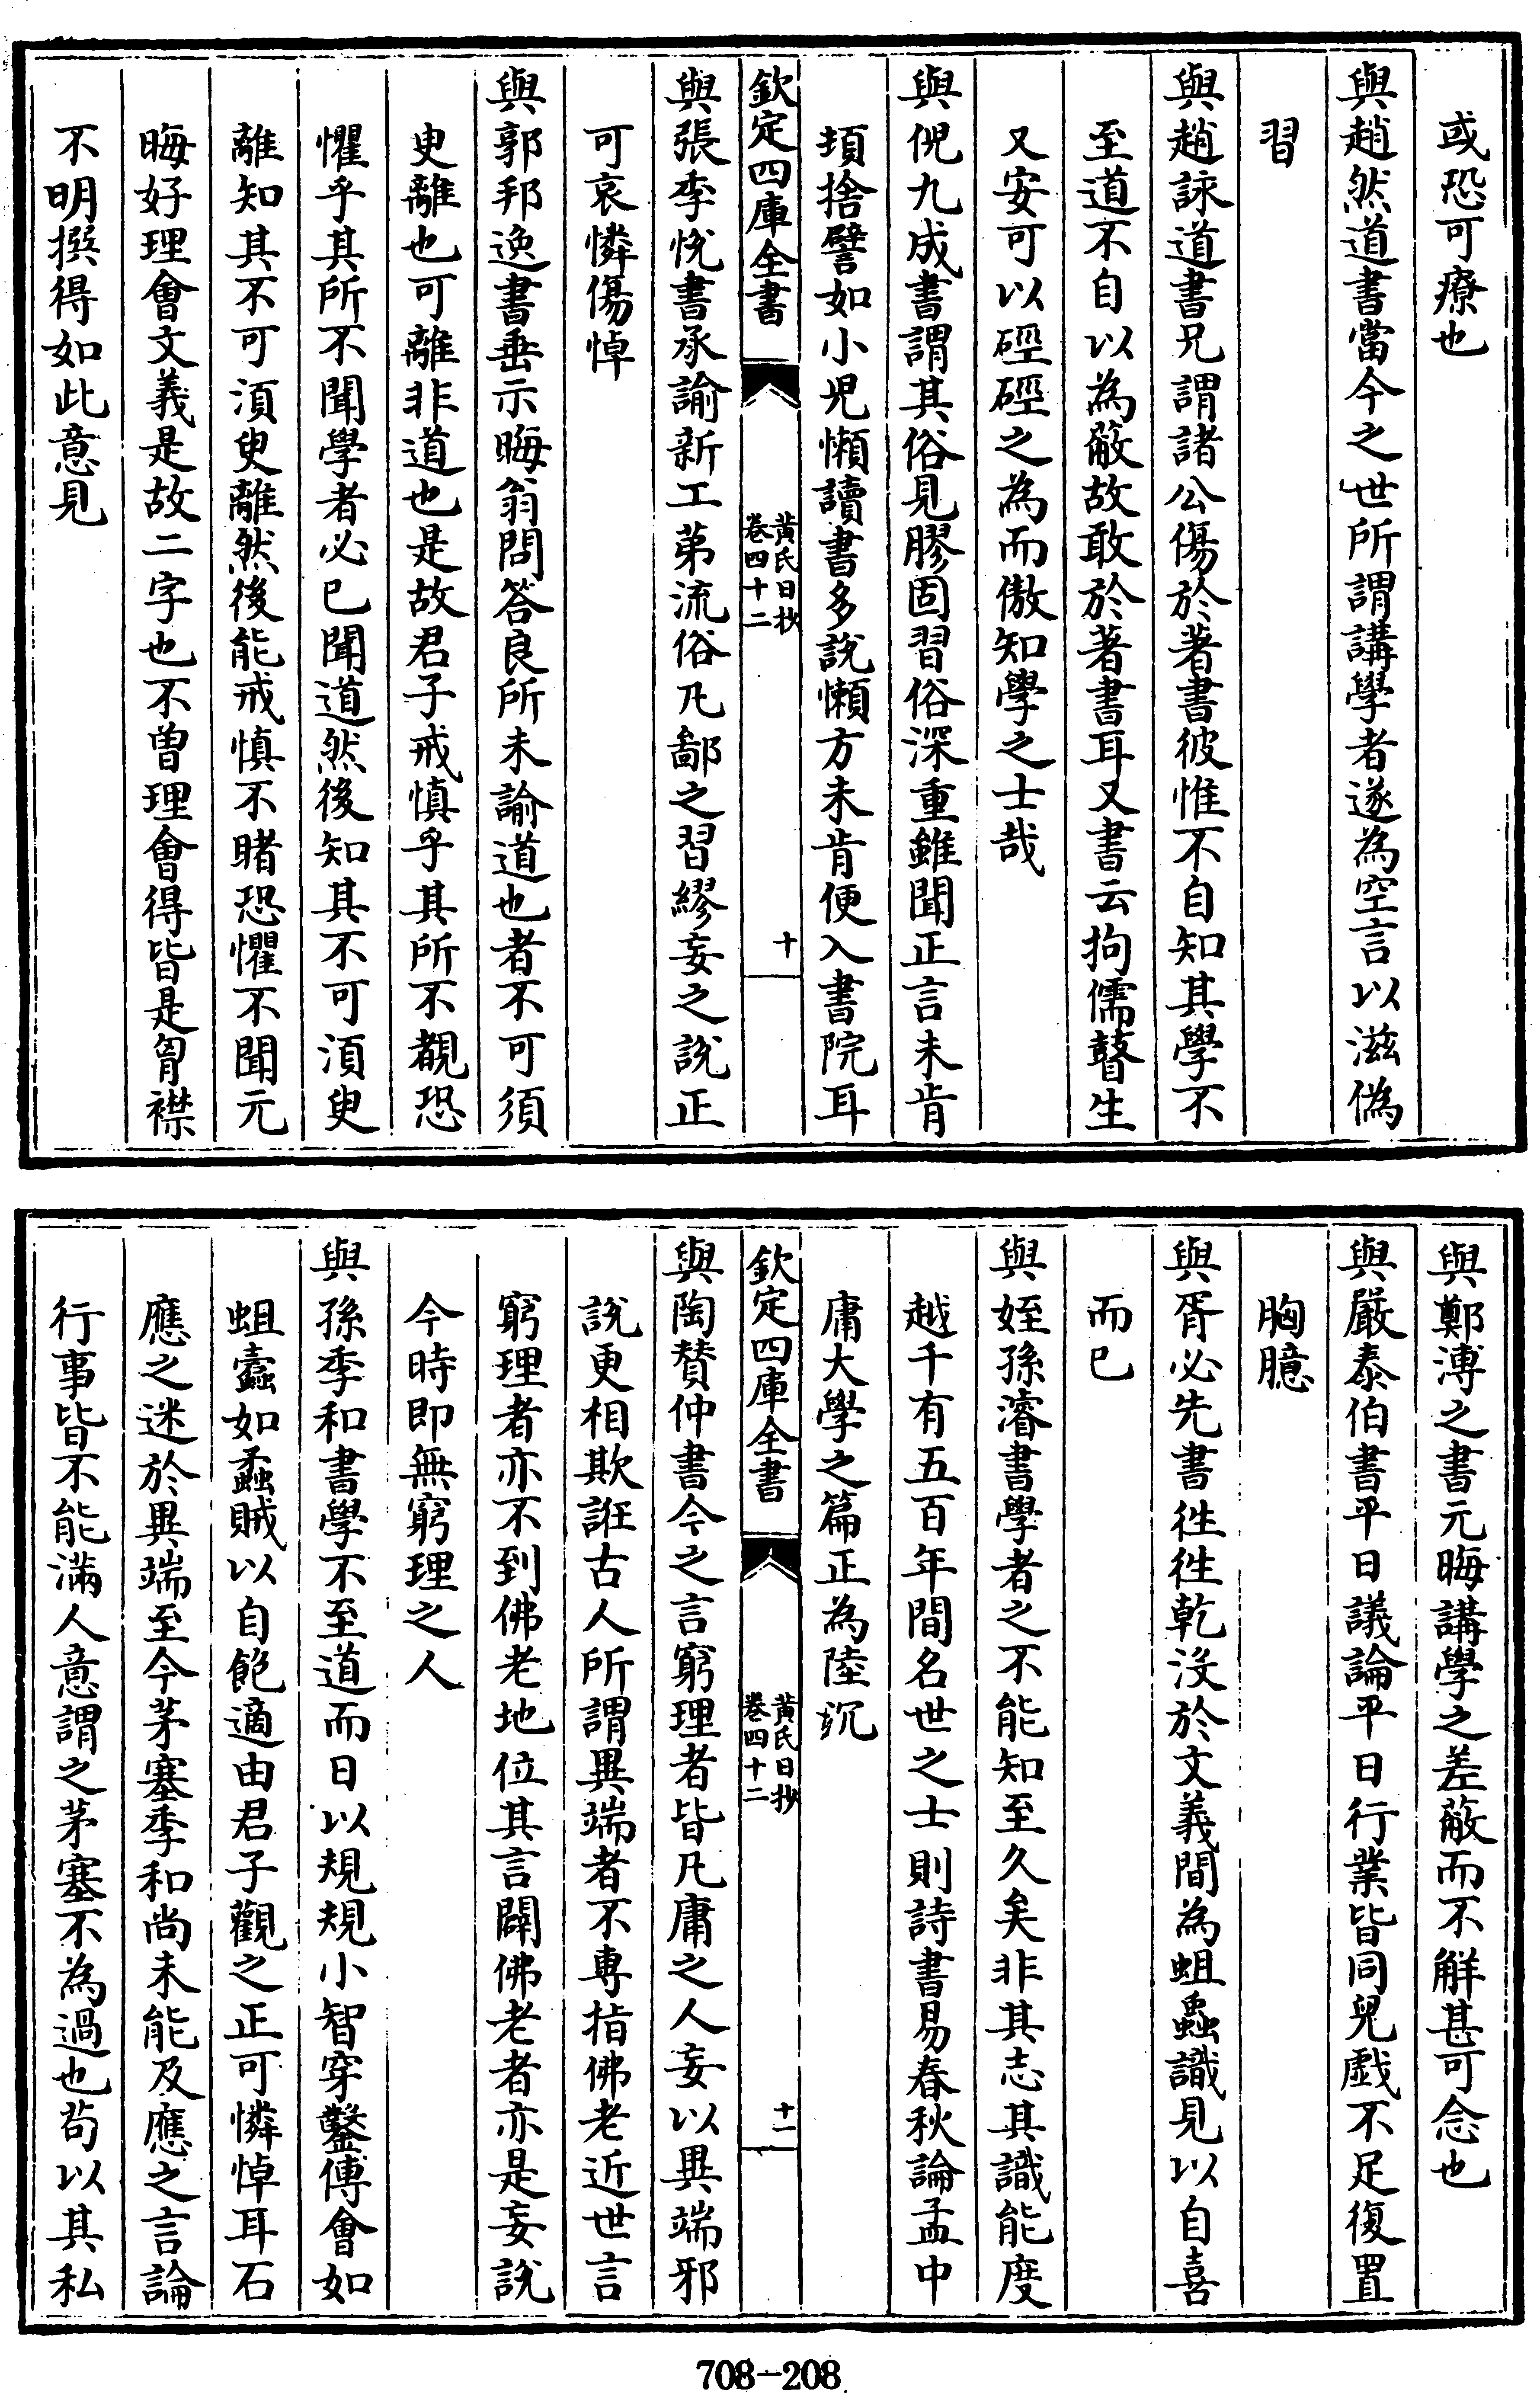 或恐可療也
與趙然道書當今之世所謂講學者遂為空言以滋偽
習
與趙詠道書兄謂諸公傷於著書彼惟不自知其學不
至道不自以為蔽故敢於著書耳又書云拘儒瞽生
又安可以硜硜之為而傲知學之士哉
與倪九成書謂其俗見膠固習俗深重雖聞正言未肯
頓捨譬如小兒懶讀書多說懶方未肯便入書院耳
欽定四庫全書
黃氏日抄
卷四十二
十
與張季悅書承諭新工第流俗凡鄙之習繆妄之說正
可哀憐傷悼
與郭邦逸書垂示晦翁問答良所未諭道也者不可須
臾離也可離非道也是故君子戒慎乎其所不覩恐
懼乎其所不聞學者必已聞道然後知其不可須臾
離知其不可須臾離然後能戒慎不睹恐懼不聞元
晦好理會文義是故二字也不曽理會得皆是胷襟
不明撰得如此意見
與鄭溥之書元晦講學之差蔽而不解甚可念也
與嚴泰伯書平日議論平日行業皆同兒戯不足復置
胸臆
與胥必先書徃徃乾沒於文義間為蛆蟲識見以自喜
而已
與姪孫濬書學者之不能知至久矣非其志其識能度
越千有五百年間名世之士則詩書易春秋論孟中
庸大學之篇正為陸沉
欽定四庫全書
黃氏日抄
卷四十二
十一
與陶贊仲書今之言窮理者皆凡庸之人妄以異端邪
說更相欺誑古人所謂異端者不專指佛老近世言
窮理者亦不到佛老地位其言闢佛老者亦是妄說
今時即無窮理之人
與孫季和書學不至道而日以規規小智穿鑿傅會如
蛆蠹如蟊賊以自飽適由君子觀之正可憐悼耳石
應之迷於異端至今茅塞季和尚未能及應之言論
行事皆不能滿人意謂之茅塞不為過也茍以其私
708-208